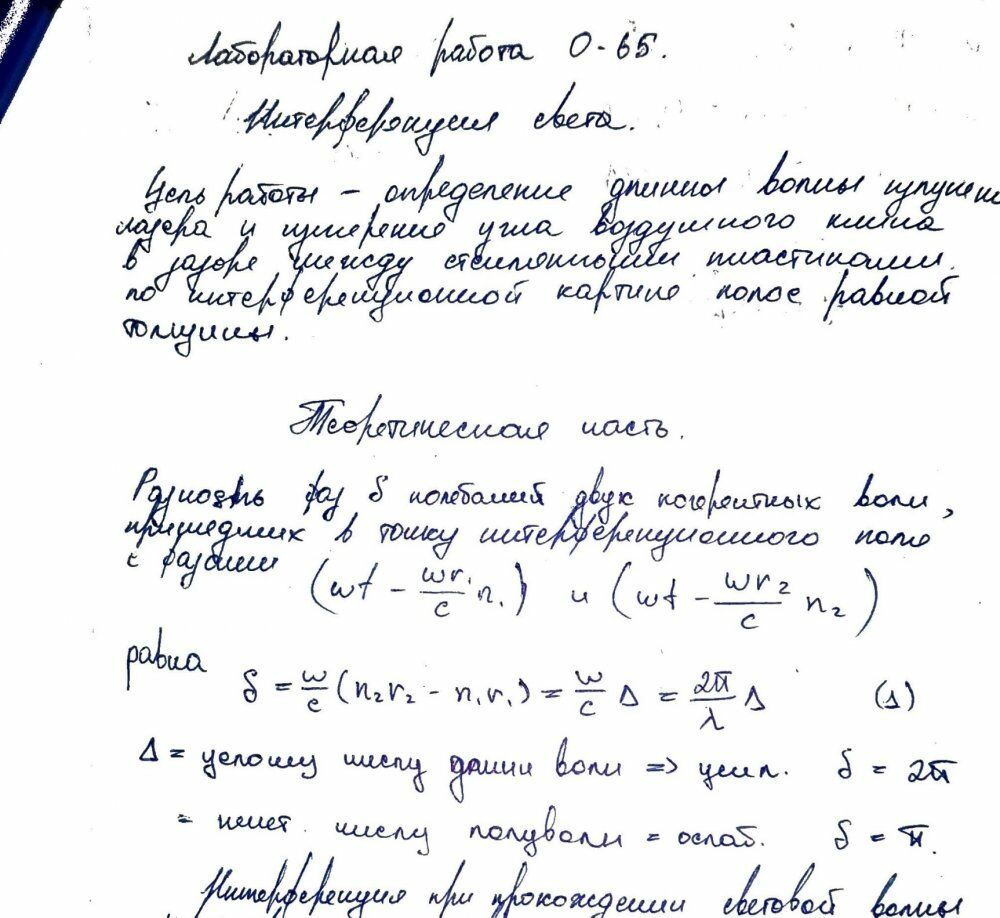 Лабораторная работа О-65.
Интерференция света.
Цель работы – определение длинны волны излучени
лазера и измерение угла воздушного клина
в зазоре между стеклянными пластинами
по интерференционной картине полос равной
толщины.
Теоретическая часть.
Разность фаз δ колебаний двух когерентных волн,
пришедших в точку интерференционного поля
с фазами (wt - wr₁/c n₁) и (wt - wr₂/c n₂)
равна
δ = w/c (n₂r₂ - n₁r₁) = w/c Δ = 2π/λ Δ (1)
Δ = целому числу длин волн => усил. δ = 2π
= нечет. числу полуволн = ослаб. δ = π.
Интерференция при прохождении световой волны